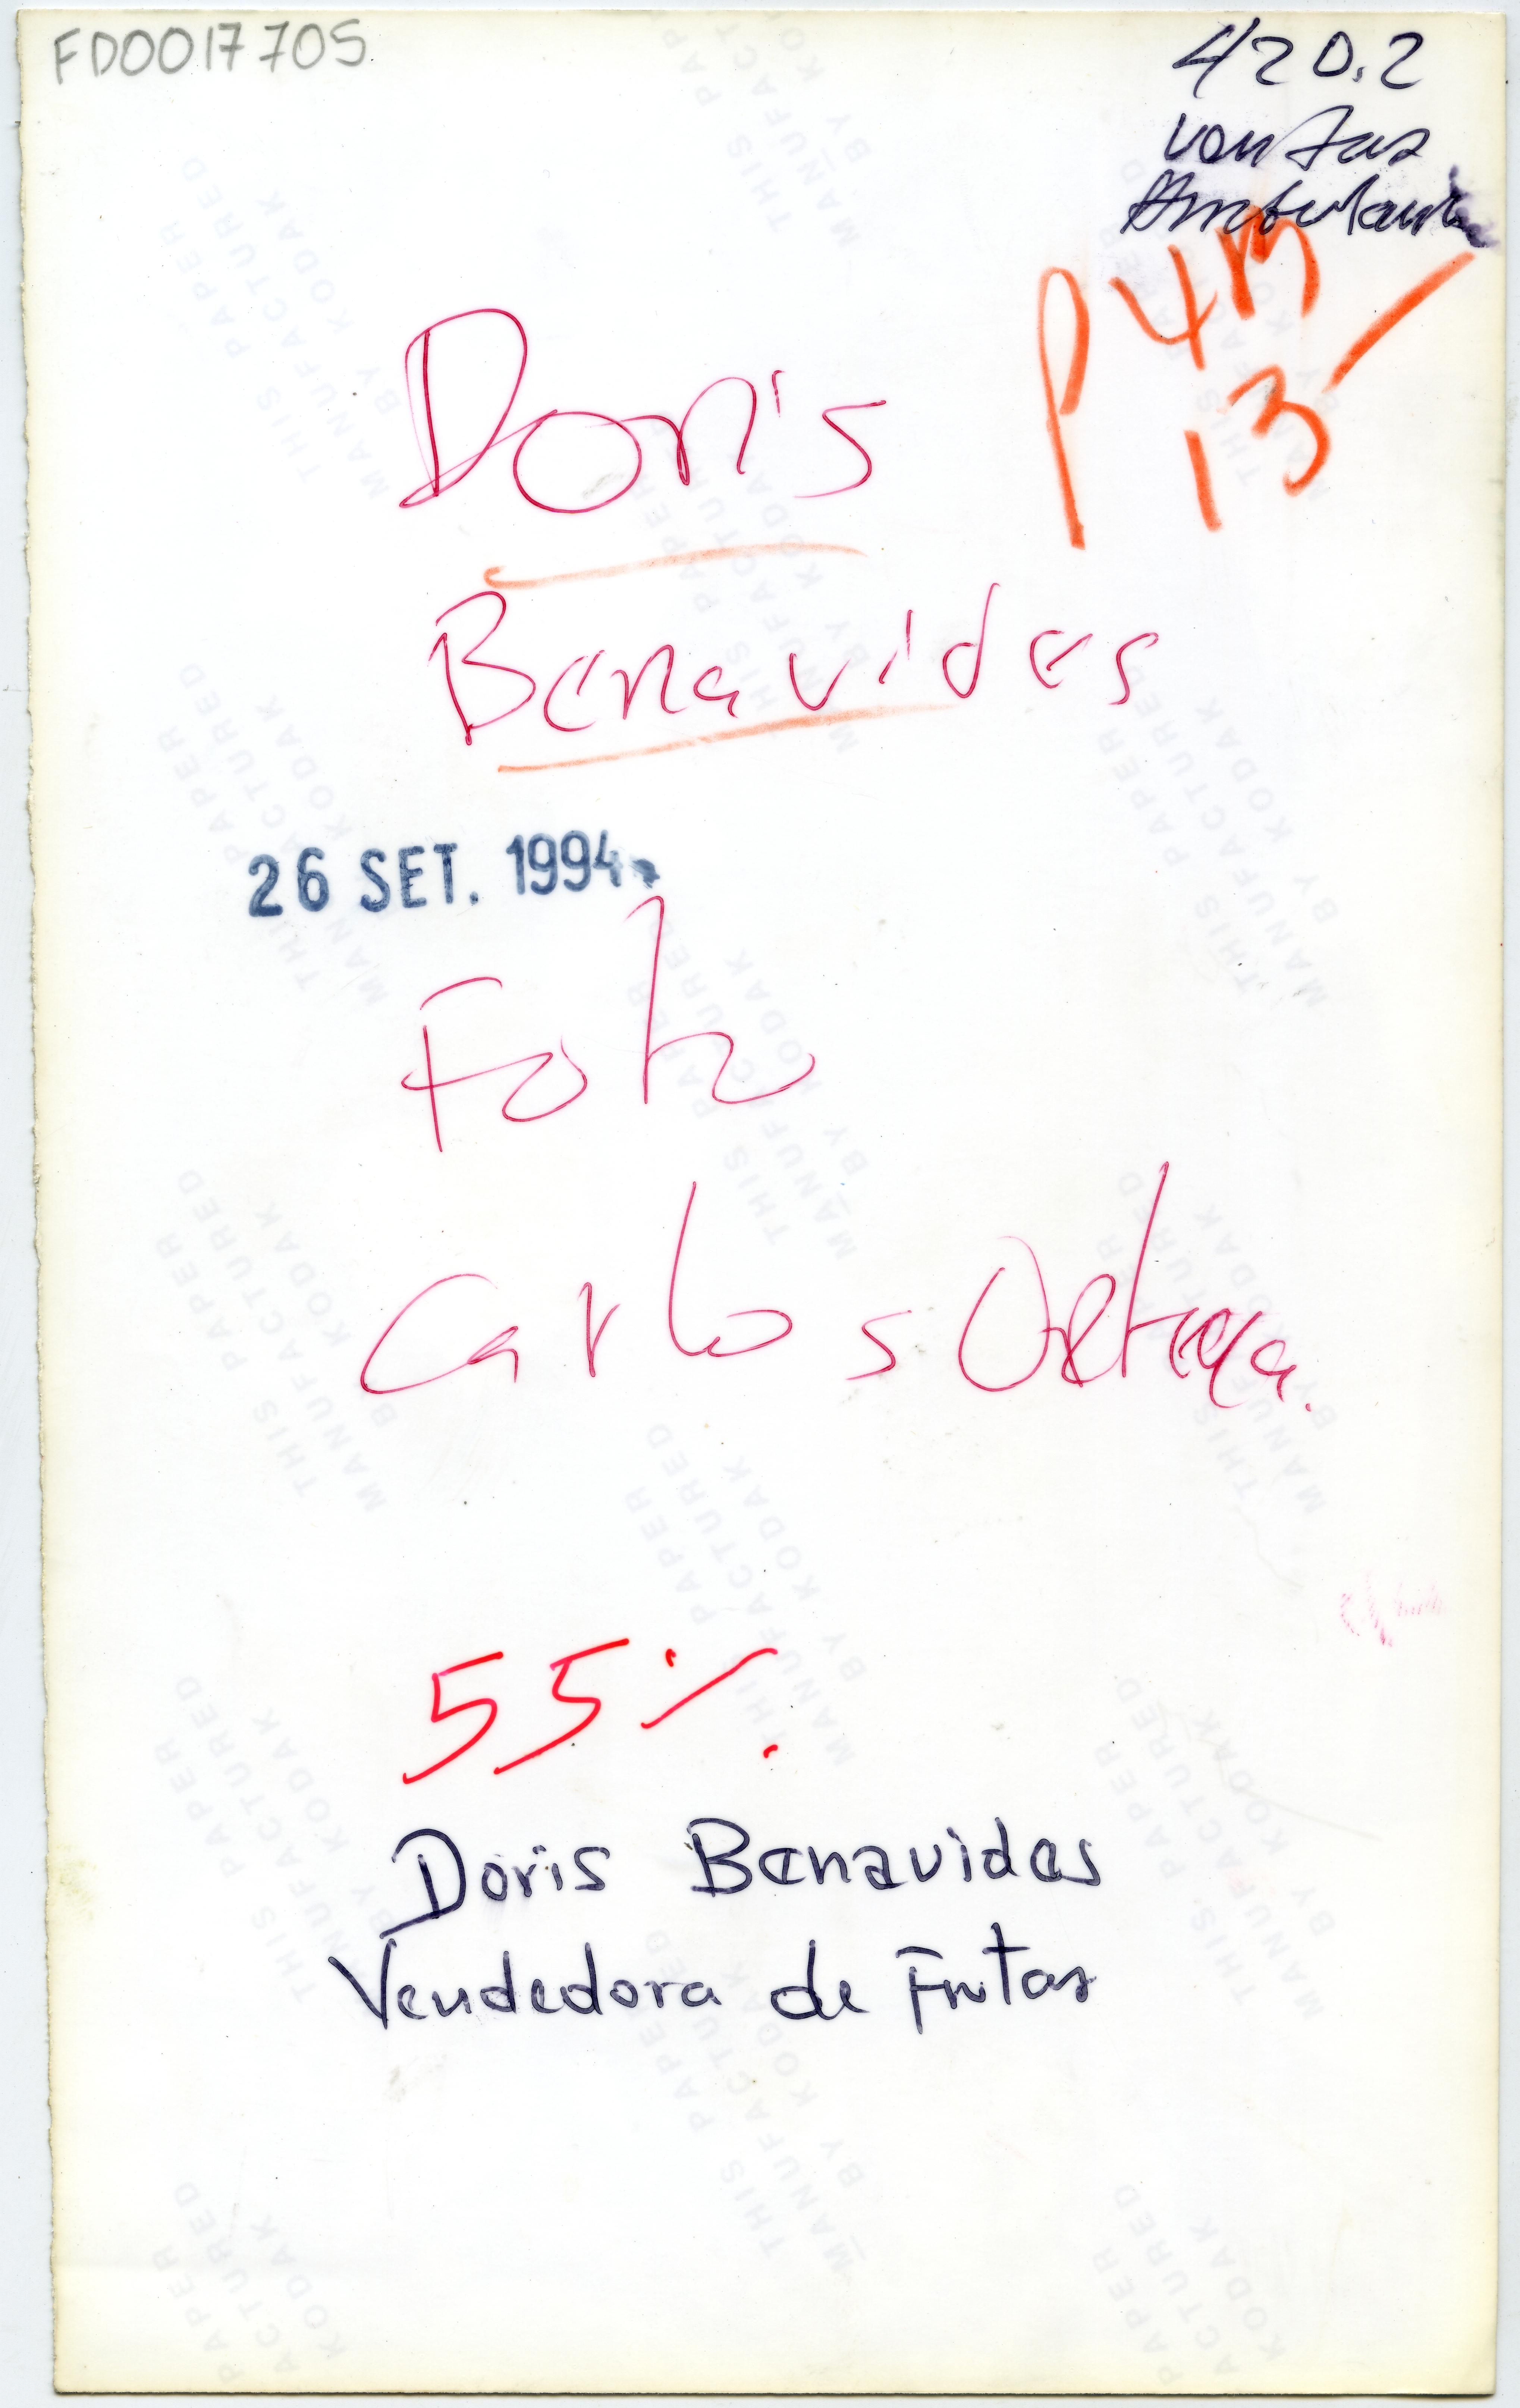 FD0017705
420.2
Ventas
Ambulante
P 4M
13
Doris
Benavides
26 SET. 1994
Foto
Carlos Ortega.
55%
Doris Benavides
Vendedora de Frutas
THIS PAPER
MANUFACTURED
BY KODAK